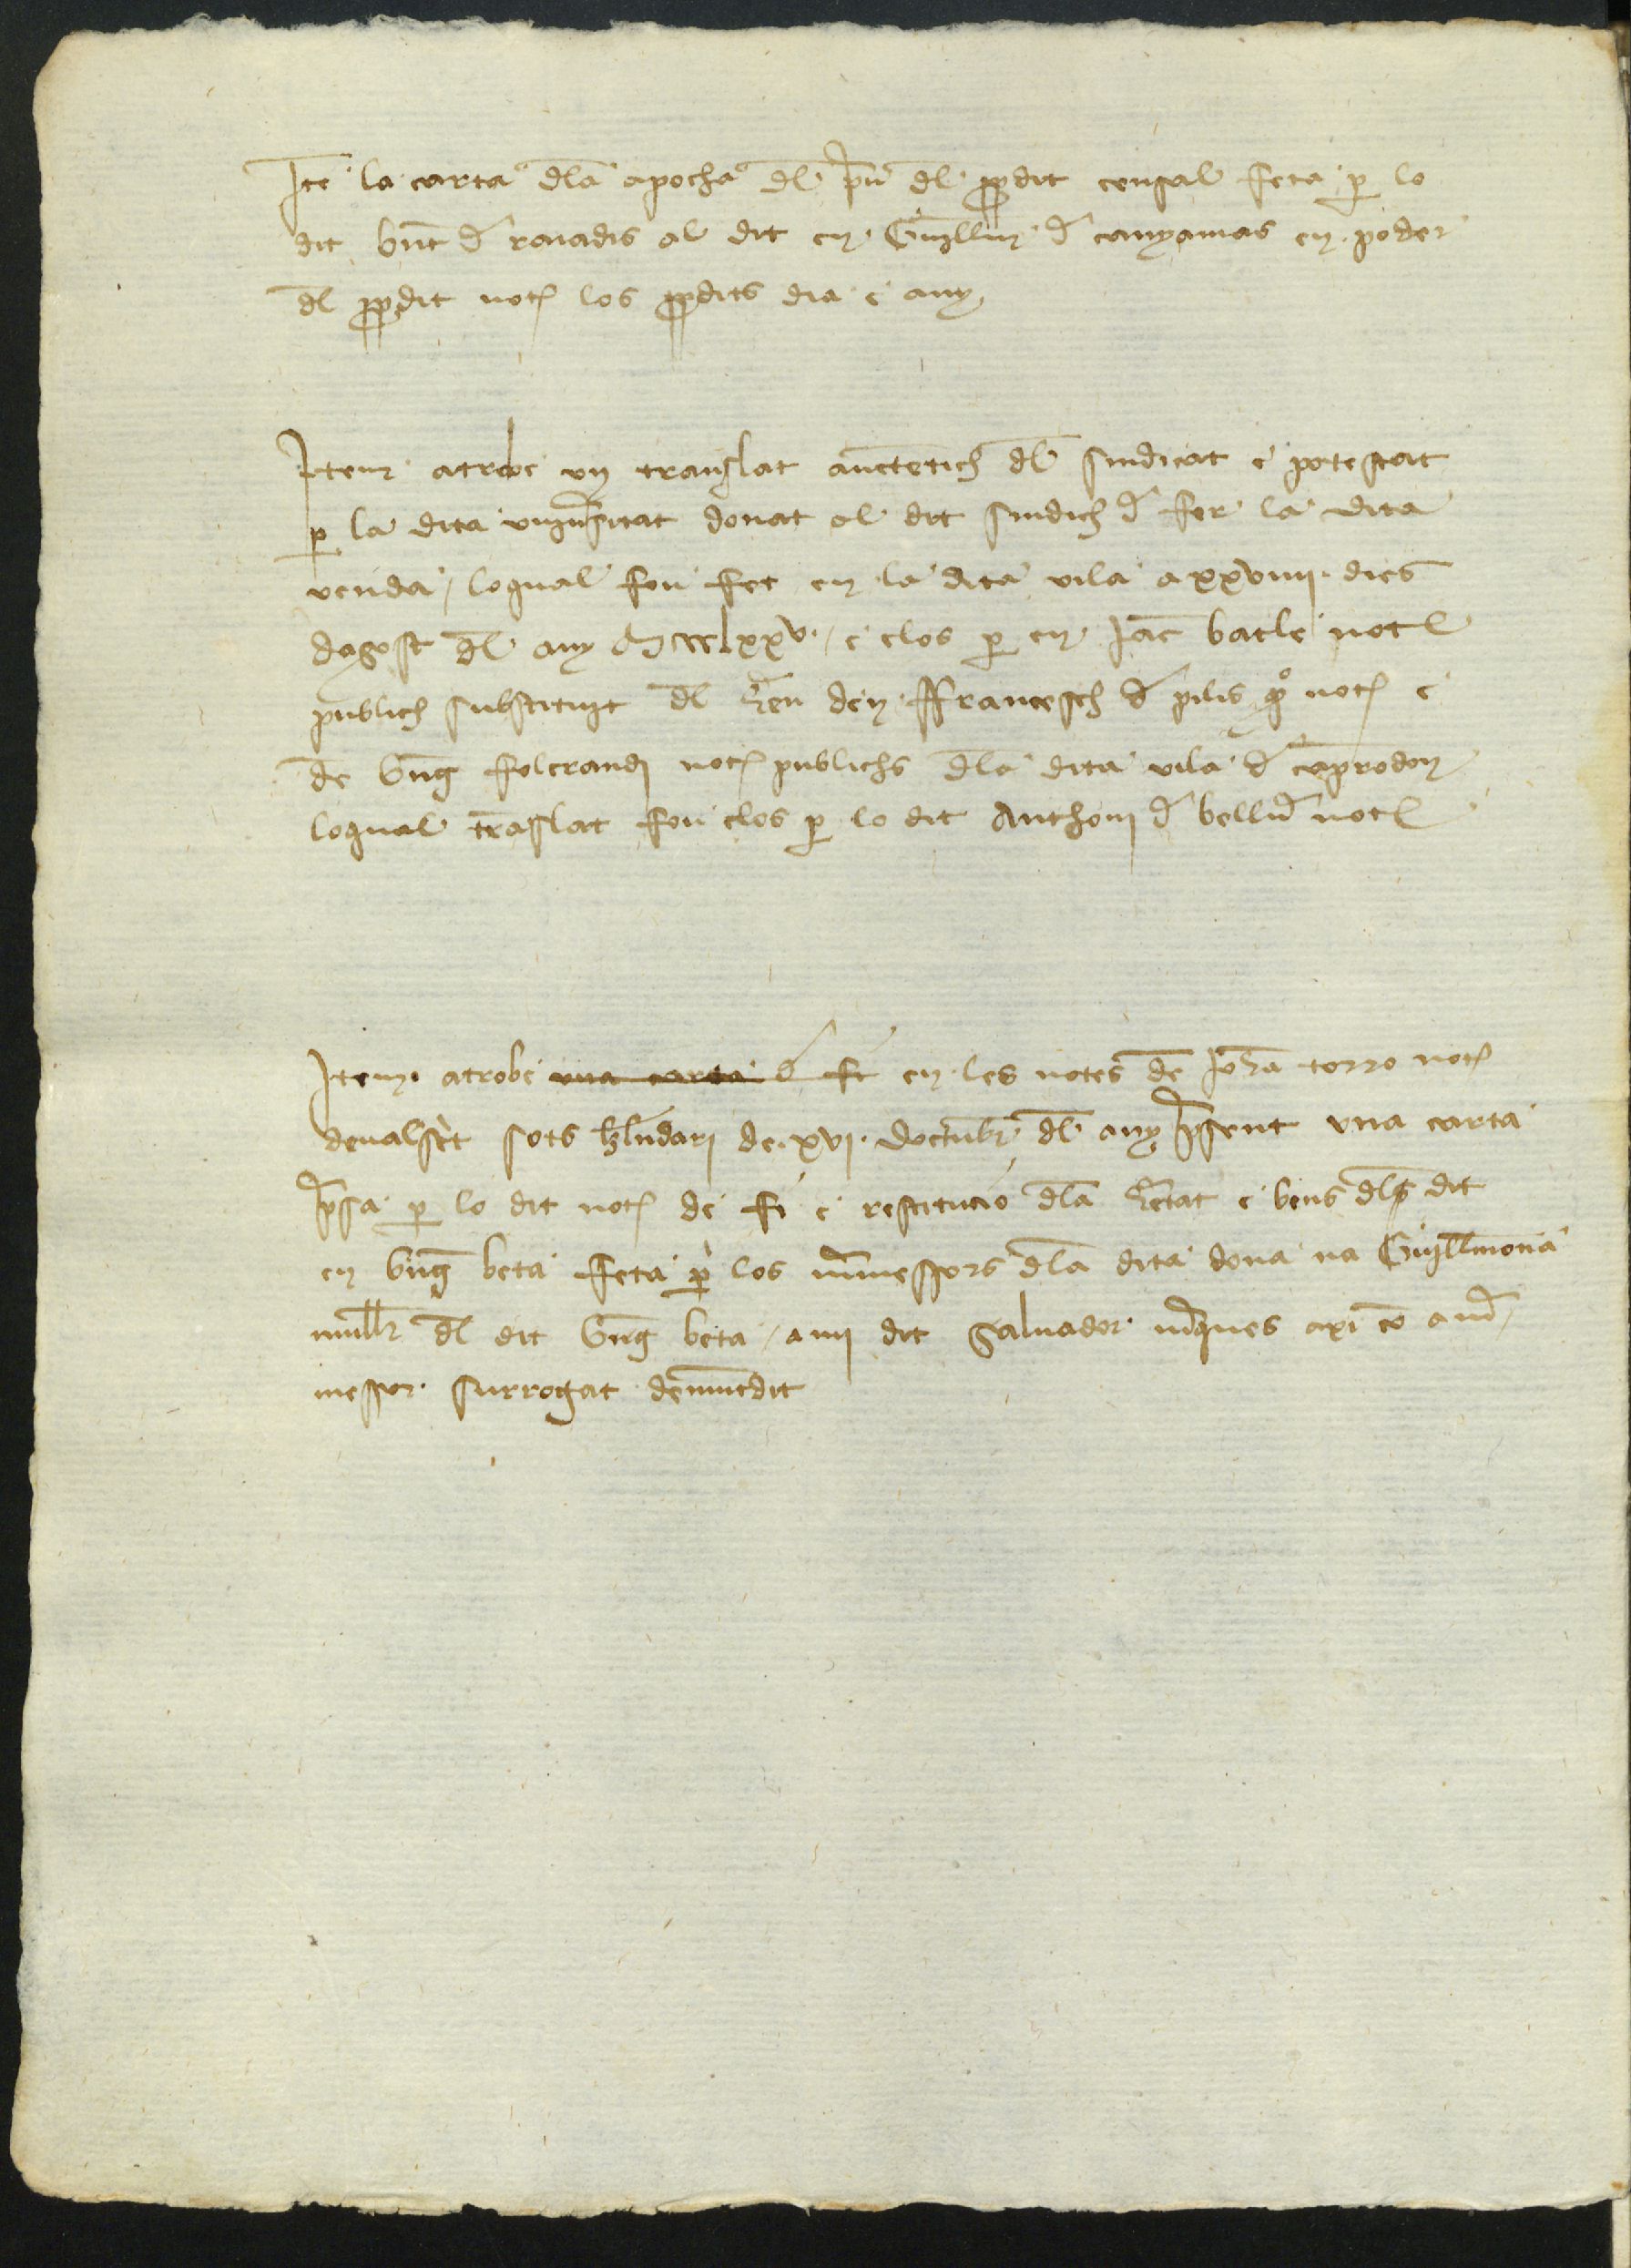 Ite la carta dla apocha dl pu dl ppdit censal feta p lo
dit bnt d raiadis al dit en Guillm d canyamas en poder
dl ppdit not los ppdits dia e any
Item atrobe un translat auctetich dl sindicat e potestat
p la dita uniusitat donat al dit sindich d fer la dita
venda / loqual fou fet en la dita vila a xxviiii dies
dagost dl any Mccclxxv / e clos p en Jac batle not
publich substituit dl hreu den ffrancesch d pilis qo not e
de bng folcrandi not publichs dla dita vila d caprodon
loqual traslat fou clos p lo dit Anthoni d bellu not
Item atrobe una carta d fi en les notes de Joha torro not
deualsct sots klendari de xvi doctubr dl any psent una carta
psa p lo dit not de fi e restitucio dla hretat e bens dls dit
en bng beta ffeta p los mmessors dla dita dona na Guillmona
mullr dl dit bng beta / a mi dit Saluador mques axi co a m
messor surrogat demuntdit